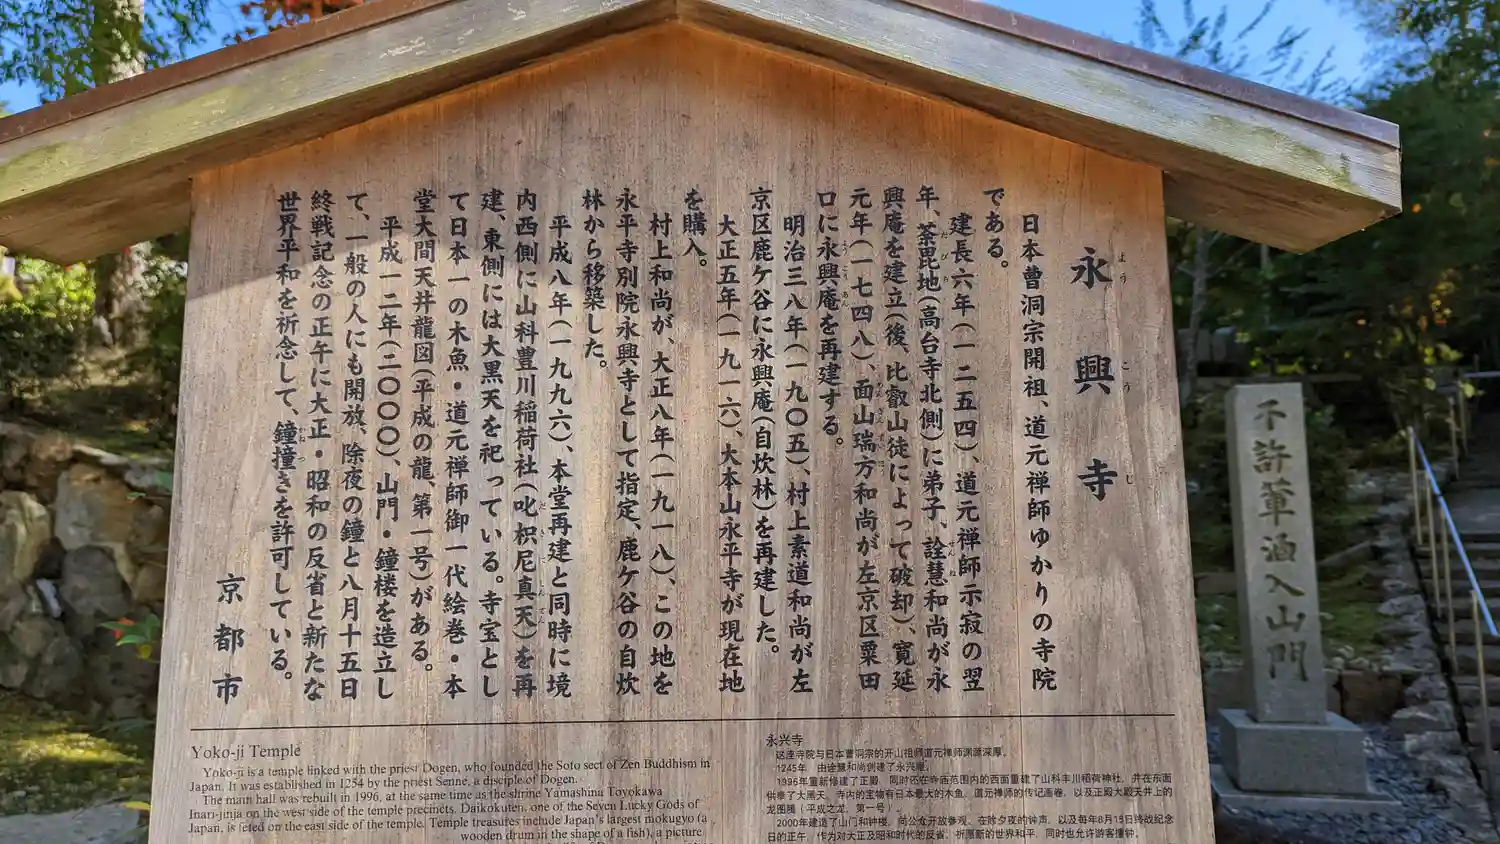 永興寺
ようこうじ
日本曹洞宗開祖、道元禅師ゆかりの寺院
である。
建長六年(一二五四)、道元禅師示寂の翌
年、荼毘地(高台寺北側)に弟子、詮慧和尚が永
興庵を建立(後、比叡山徒によって破却)、寛延
元年(一七四八)、面山瑞方和尚が左京区粟田
口に永興庵を再建する。
明治三八年(一九〇五)、村上素道和尚が左
京区鹿ケ谷に永興庵(自炊林)を再建した。
大正五年(一九一六)、大本山永平寺が現在地
を購入。
村上和尚が、大正八年(一九一八)、この地を
永平寺別院永興寺として指定、鹿ケ谷の自炊
林から移築した。
平成八年(一九九六)、本堂再建と同時に境
内西側に山科豊川稲荷社(叱枳尼真天)を再
建、東側には大黒天を祀っている。寺宝とし
て日本一の木魚・道元禅師御一代絵巻・本
堂大間天井龍図(平成の龍、第一号)がある。
平成一二年(二〇〇〇)、山門・鐘楼を造立し
て、一般の人にも開放、除夜の鐘と八月十五日
終戦記念の正午に大正・昭和の反省と新たな
世界平和を祈念して、鐘撞きを許可している。
京都市
Yoko-ji Temple
Yoko-ji is a temple linked with the priest Dogen, who founded the Soto sect of Zen Buddhism in
Japan. It was established in 1254 by the priest Senne, a disciple of Dogen.
The main hall was rebuilt in 1996, at the same time as the shrine Yamashina Toyokawa
Inari-jinja on the west side of the temple precincts. Daikokuten, one of the Seven Lucky Gods of
Japan, is feted on the east side of the temple. Temple treasures include Japan's largest mokugyo (a
wooden drum in the shape of a fish), a picture
永兴寺
这座寺院与日本曹洞宗的开山祖师道元禅师渊源深厚。
1245年,由诠慧和尚创建了永兴庵。
1996年重新修建了正殿,同时还在寺庙范围内的西面重建了山科丰川稻荷神社,并在东面
供奉了大黑天。寺内的宝物有日本最大的木鱼、道元禅师的传记画卷、以及正殿大殿天井上的
龙图腾(平成之龙,第一号)。
2000年建造了山门和钟楼,向公众开放参观。在除夕夜的钟声,以及每年8月15日终战纪念
日的正午,作为对大正及昭和时代的反省,祈愿新的世界和平,同时也允许游客撞钟。
不許葷酒入山門